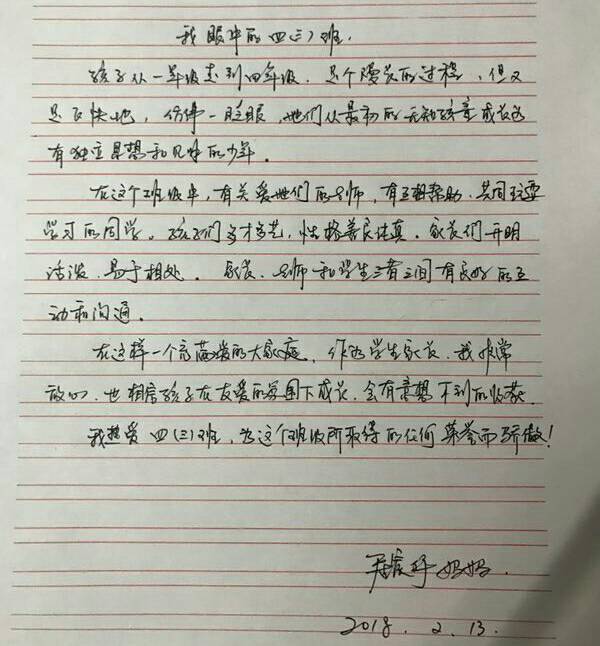 我眼中的四(三)班.
孩子从一年级走到四年级. 是个漫长的过程, 但又
是飞快地, 仿佛一眨眼, 她们从最初的无知孩童成长为
有独立思想和见解的少年.
在这个班级中, 有关爱她们的老师, 有互相帮助、共同玩耍
学习的同学。孩子们多才多艺, 性格善良纯真. 家长们开明
活泼, 易于相处. 家长、老师和学生三者之间有良好的互
动和沟通.
在这样一个充满爱的大家庭, 作为学生家长, 我非常
放心, 也相信孩子在友爱的氛围下成长, 会有意想不到的收获.
我热爱四(三)班, 为这个班级所取得的任何荣誉而骄傲!
妈妈.
2018. 2. 13.